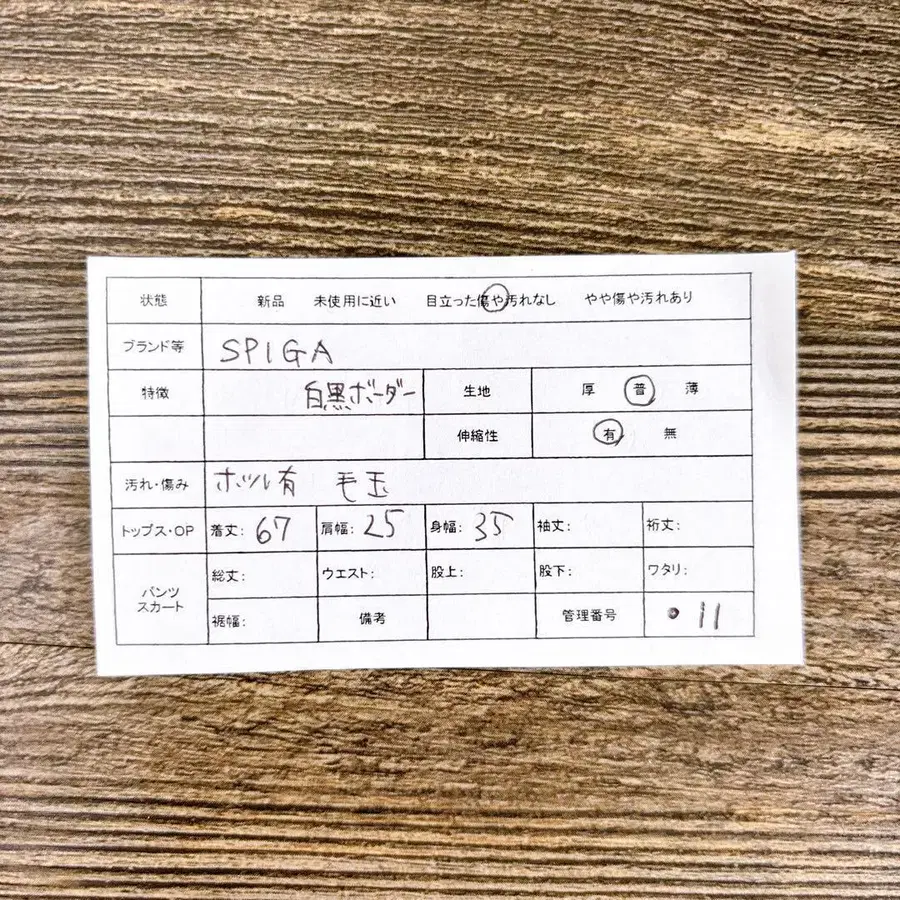 状態 新品 未使用に近い 目立った傷や汚れなし やや傷や汚れあり
ブランド等 SPIGA
特徴 白黒ボーダー 生地 厚 普 薄
伸縮性 有 無
汚れ・傷み ホツレ有 毛玉
トップス・OP 着丈: 67 肩幅: 25 身幅: 35 袖丈: 裄丈:
パンツ スカート 総丈: ウエスト: 股上: 股下: ワタリ:
裾幅: 備考 管理番号 • 11